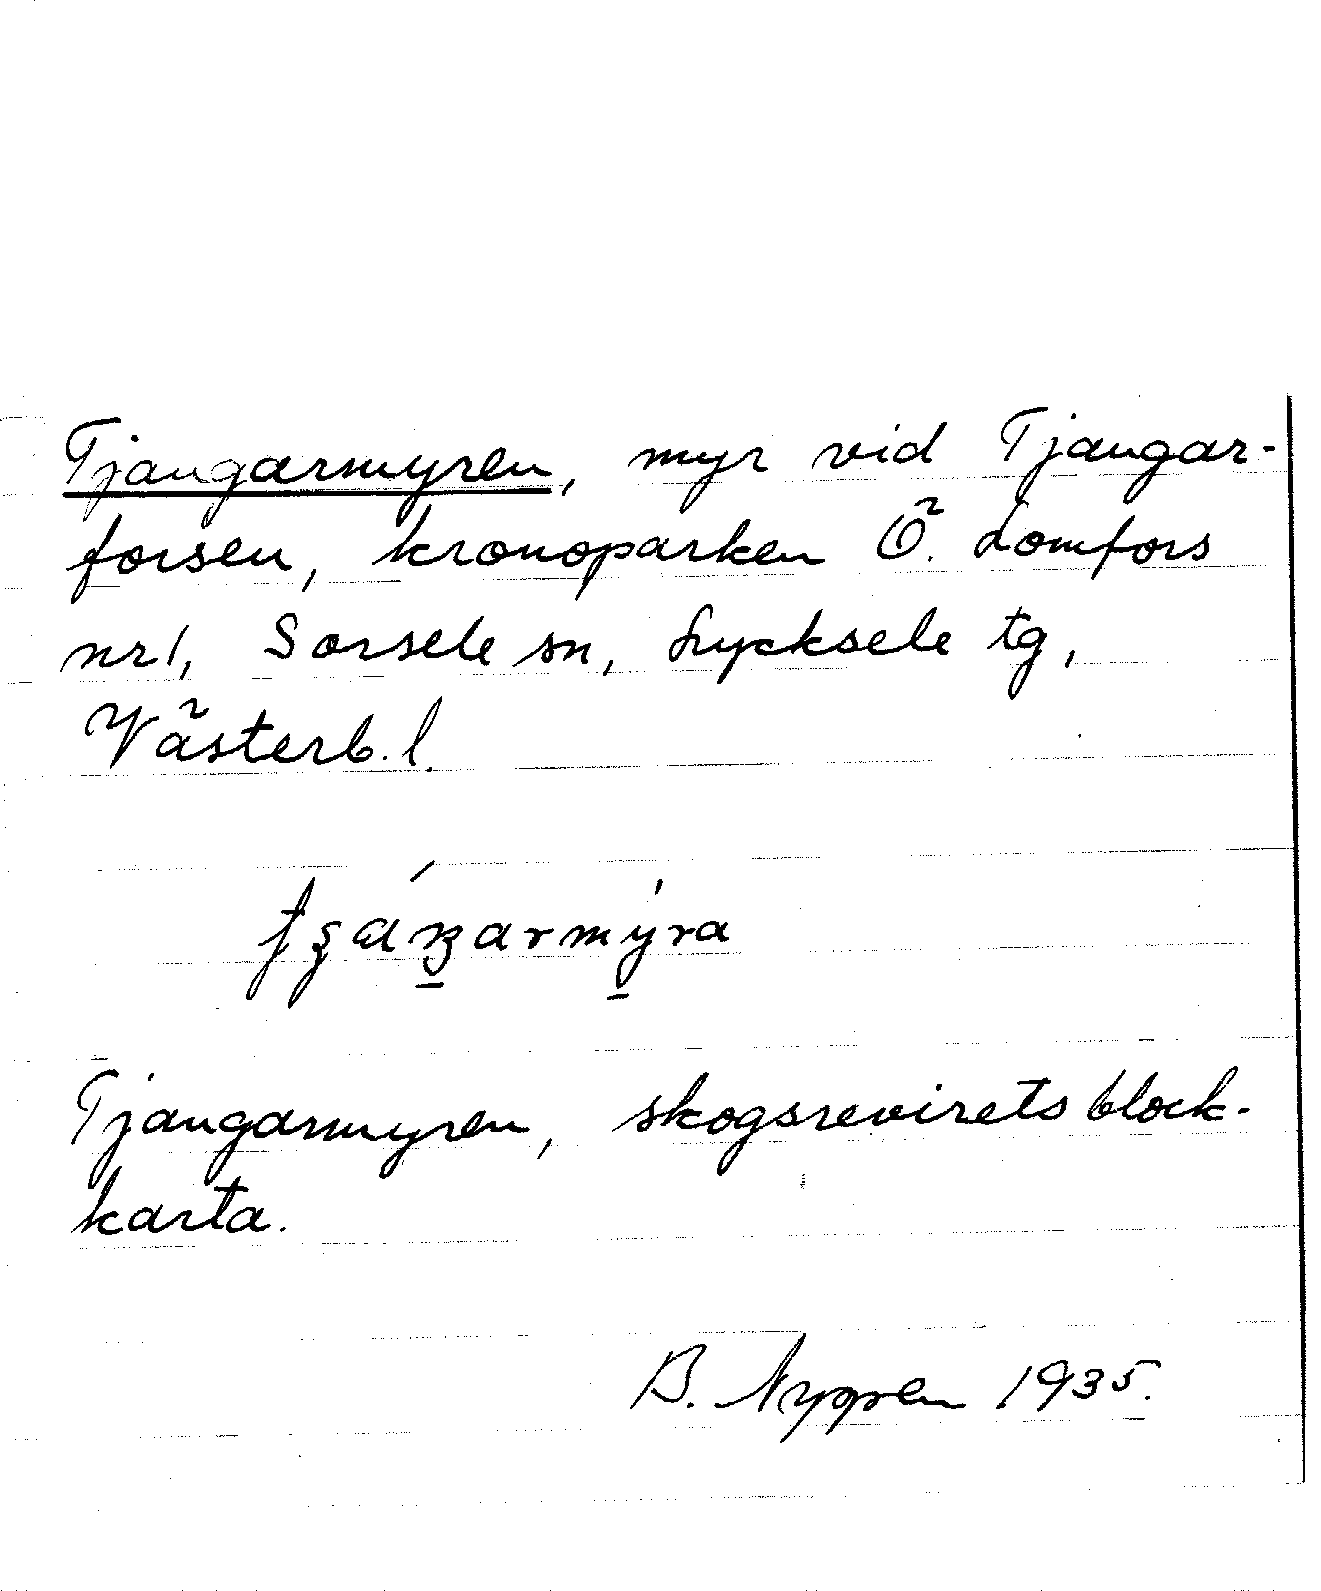 Tjangarmyren, myr vid Tjangar-
forsen, kronoparken Ö. Lomfors
nr 1, Sorsele sn, Lycksele tg,
Västerb. l.
Tjangarmyren, skogsrevirets block-
karta.
B. Nygren 1935.